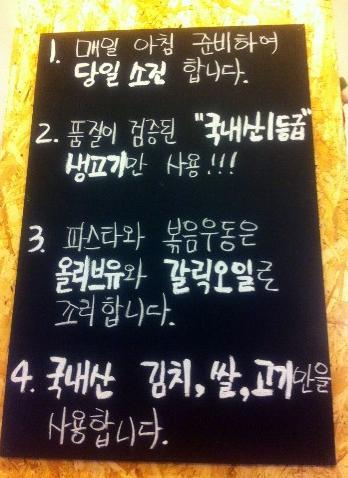 1. 매일 아침 준비하여
당일 소진 합니다.
2. 품질이 검증된 "국내산1등급"
생고기만 사용!!!
3. 파스타와 볶음우동은
올리브유와 갈릭오일로
조리합니다.
4. 국내산 김치,쌀,고기만을
사용합니다.